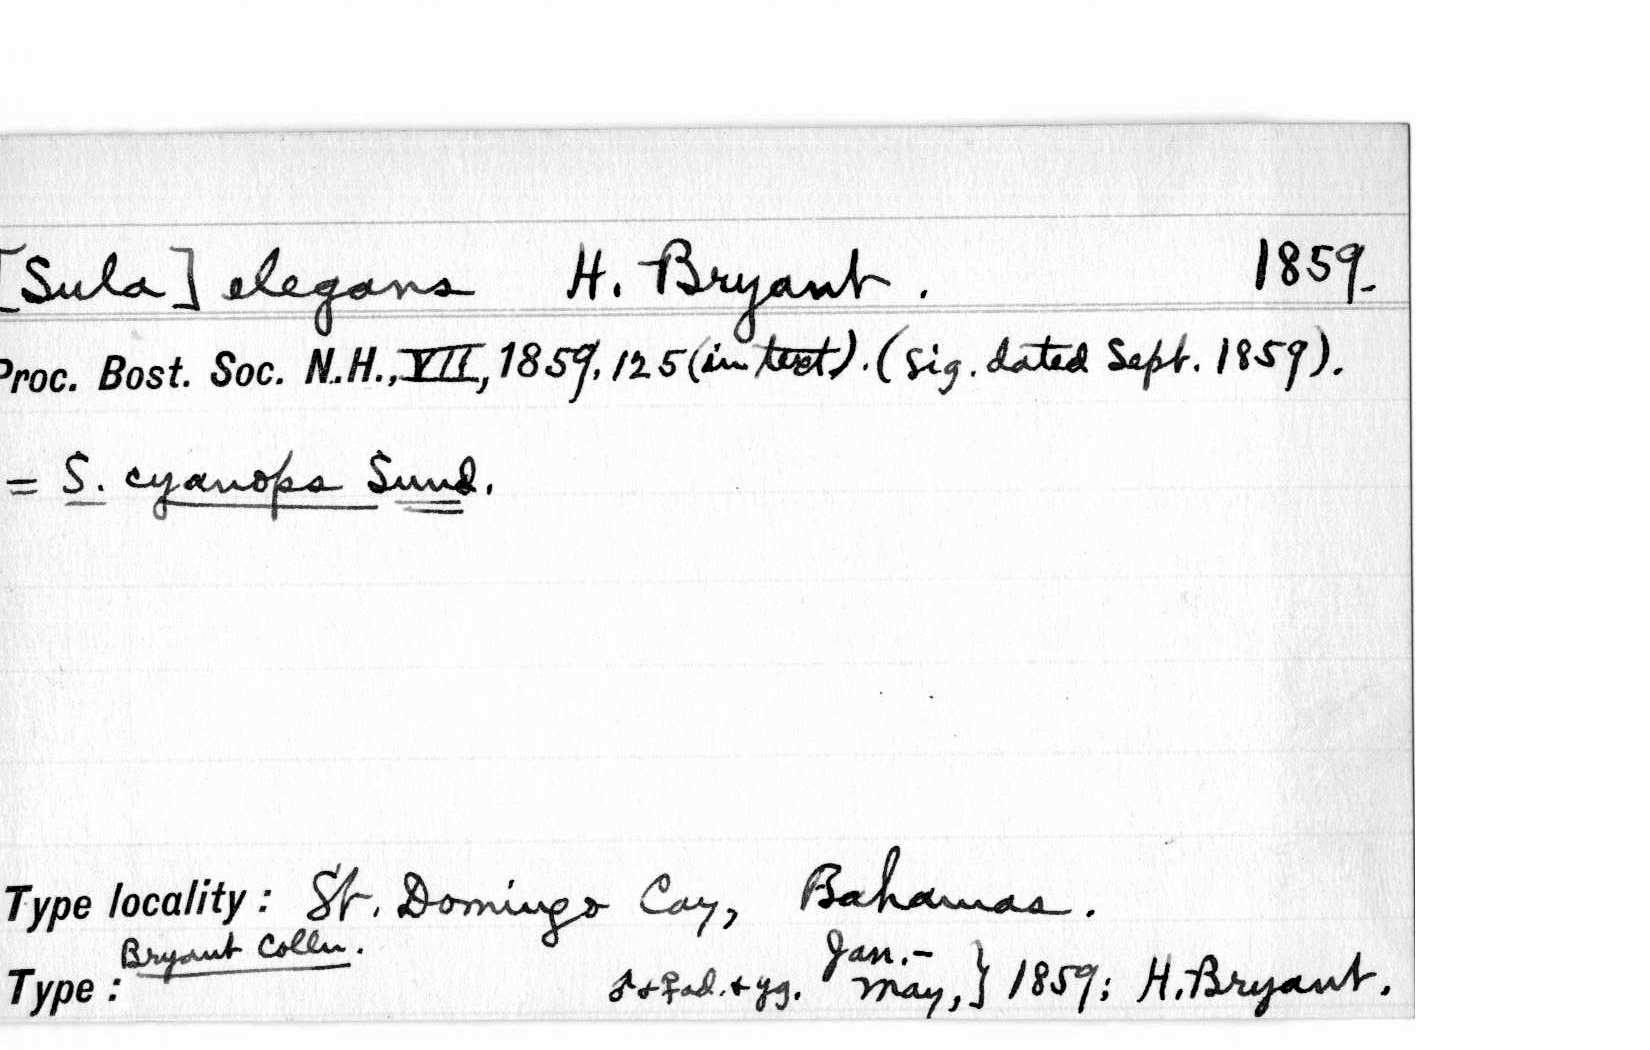 [Sula] elegans H. Bryant. 1859.
Proc. Bost. Soc. N.H., VII, 1859, 125 (in text). (Sig. dated Sept. 1859).
= S. cyanops Sund.
Type locality: St. Domingo Cay, Bahamas.
Bryant Colln.
Type: ♂ + ♀ ad. + yg. Jan.- May, } 1859; H. Bryant.